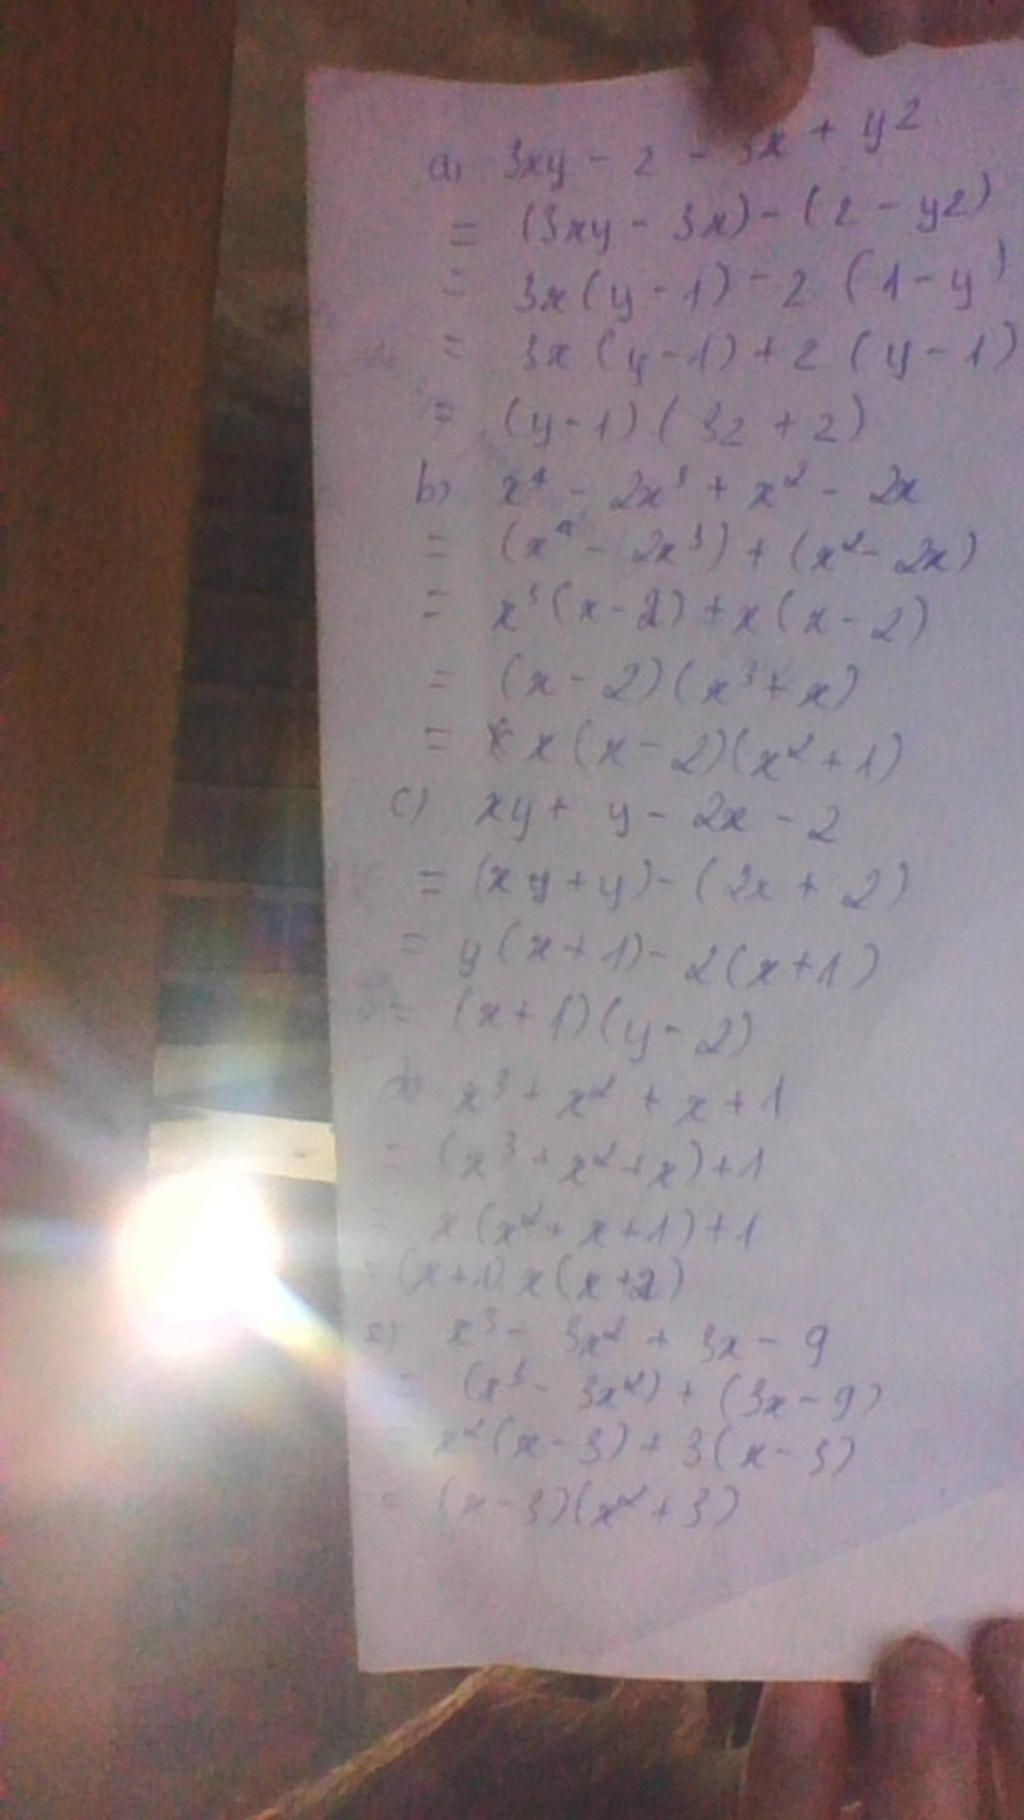 a) 3xy - 2 - 3x + y2
= (3xy - 3x) - (2 - y2)
= 3x(y - 1) - 2 (1 - y)
= 3x (y - 1) + 2 (y - 1)
= (y - 1) (3z + 2)
b) x⁴ - 2x³ + x² - 2x
= (x⁴ - 2x³) + (x² - 2x)
= x³(x - 2) + x(x - 2)
= (x - 2)(x³ + x)
= x(x - 2)(x² + 1)
c) xy + y - 2x - 2
= (xy + y) - (2x + 2)
= y(x + 1) - 2(x + 1)
= (x + 1)(y - 2)
d) x³ + x² + x + 1
= (x³ + x² + x) + 1
= x(x² + x + 1) + 1
= (x + 1) x(x + 2)
e) x³ - 3x² + 3x - 9
= (x³ - 3x²) + (3x - 9)
= x²(x - 3) + 3(x - 3)
= (x - 3)(x² + 3)